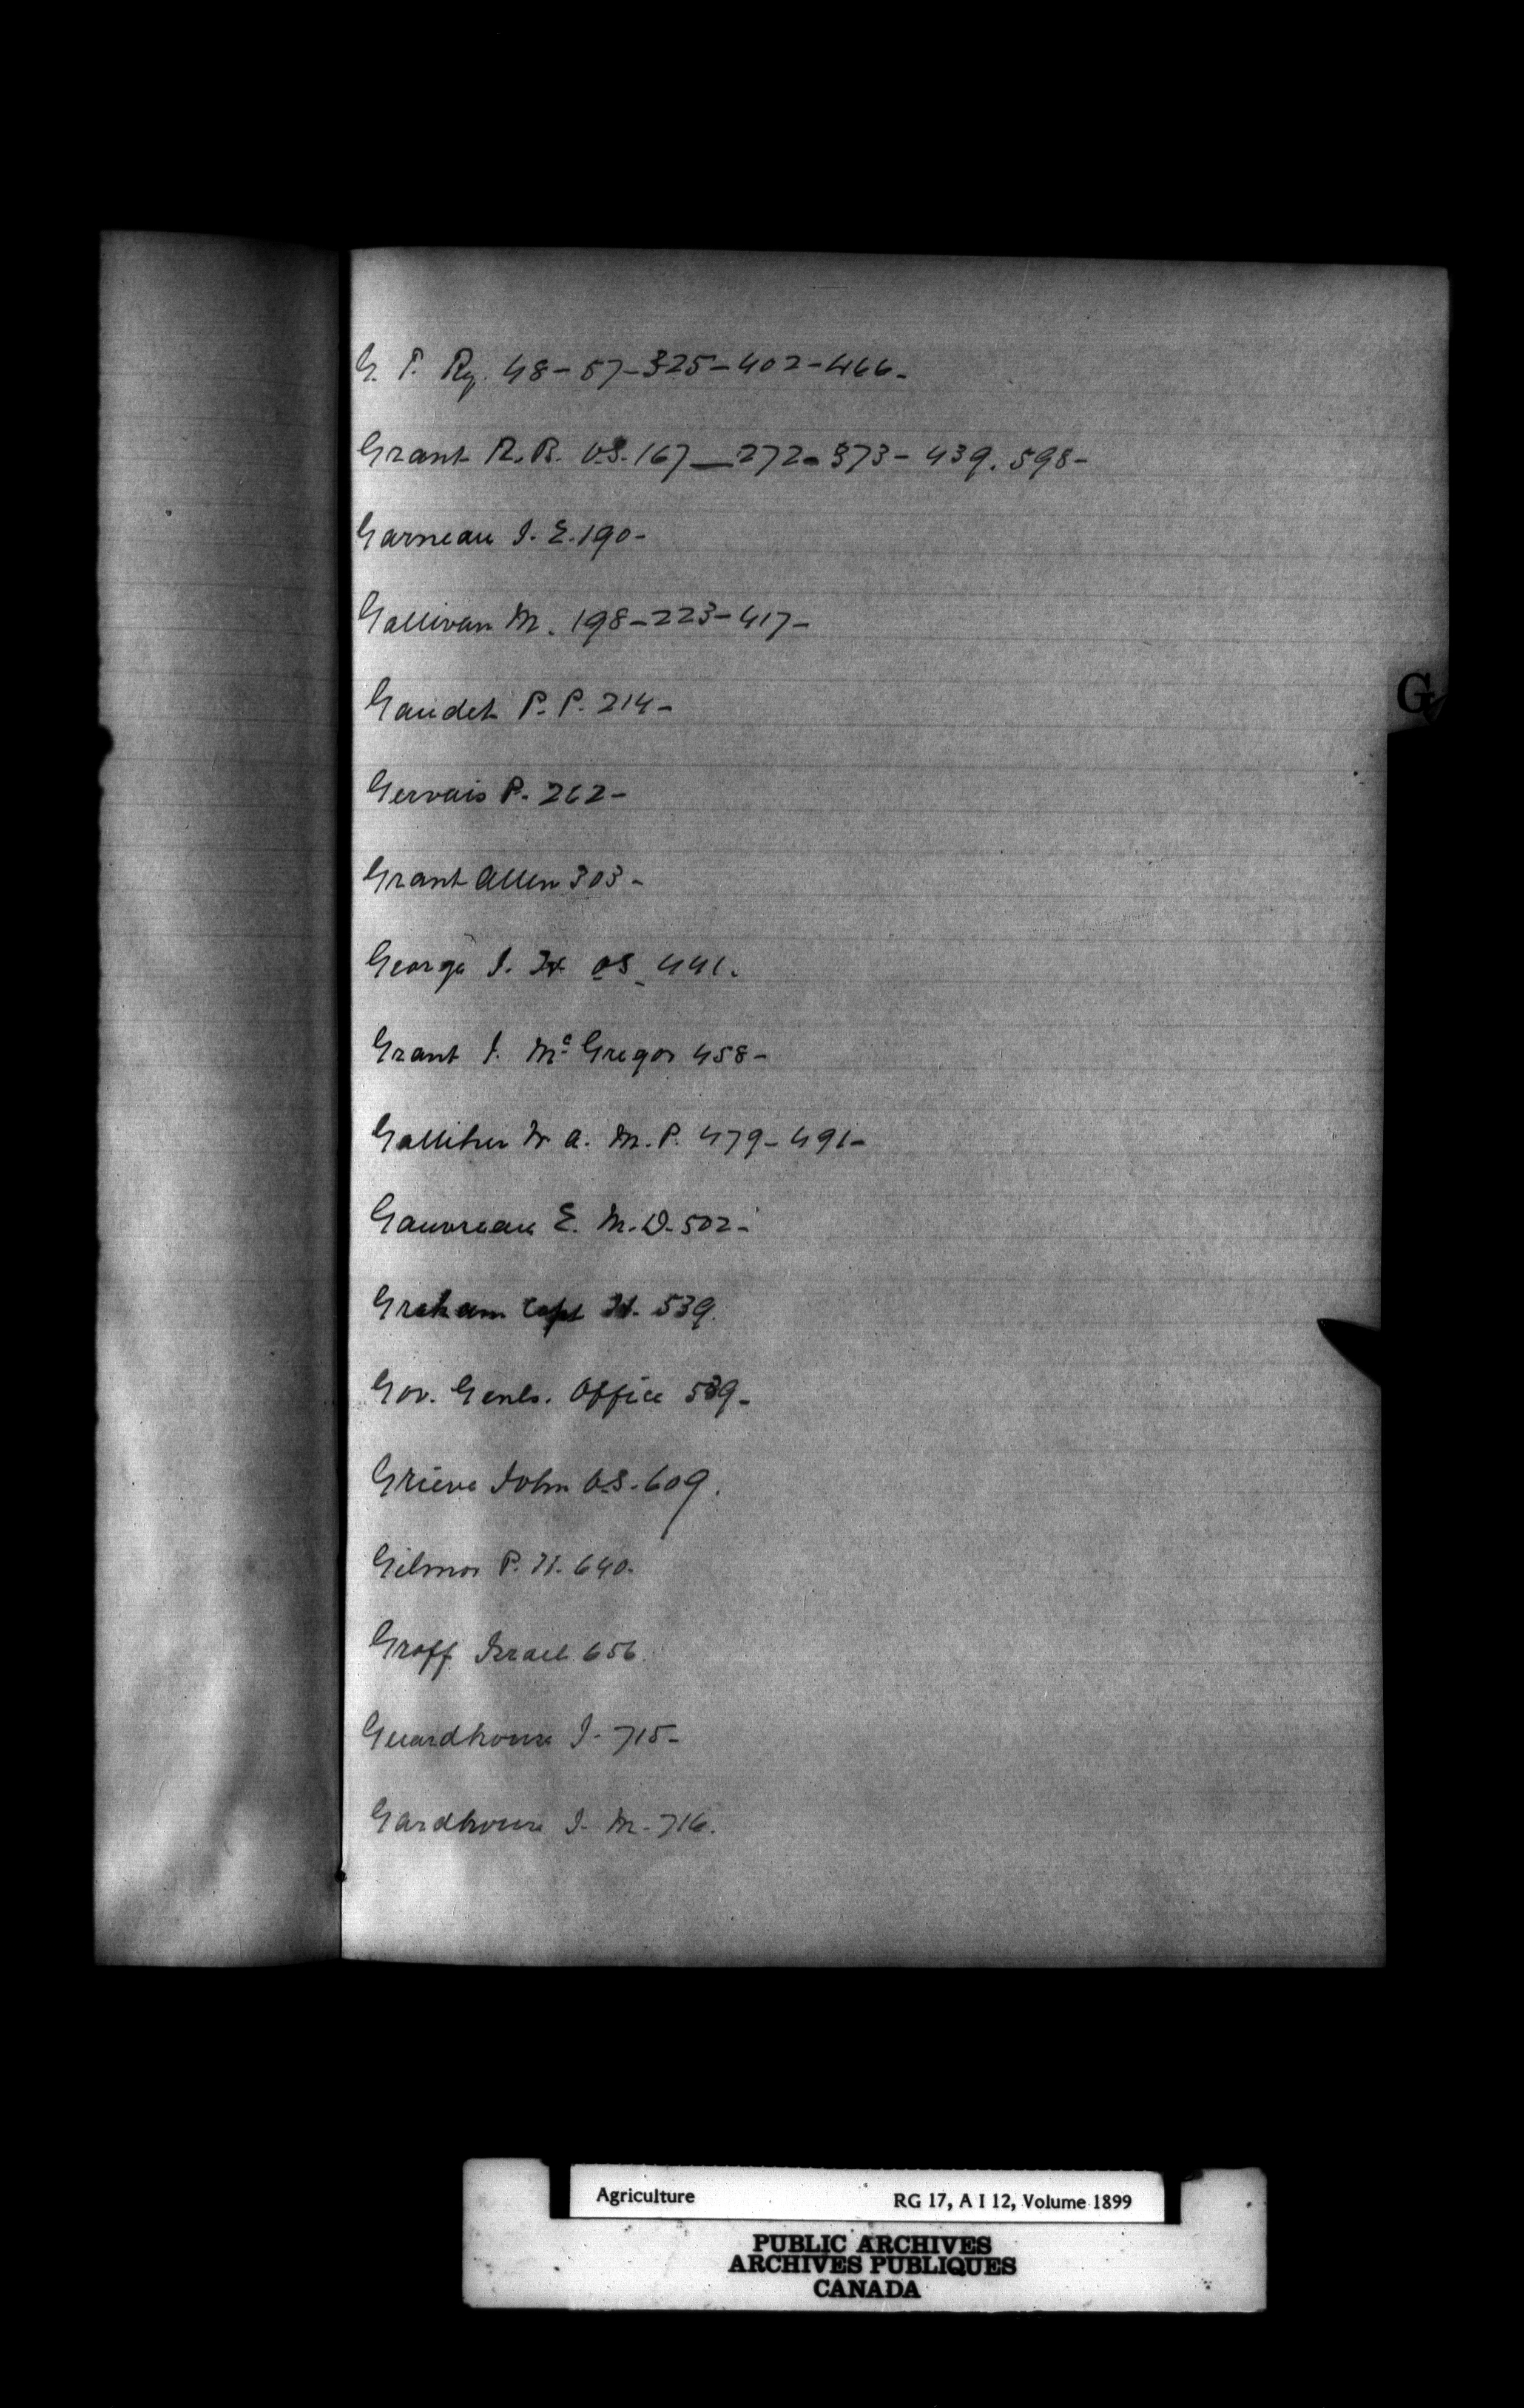 G. T. Ry. 48-57-325-402-466-
Grant R. B. V.S. 167—272-373-439. 598-
Garneau J. E. 190-
Gallivan M. 198-223-417-
Gaudet P. P. 214-
Gervais P. 262-
G
Grant Allen 303-
George J. 441.
Grant J. McGregor 458-
Galliher W A. M.P. 479-491-
Gauvreau E. M.D. 502-
Graham Capt H. 539.
Gov. Genls. Office 539-
Grieve John V.S. 609.
Gilmor P. H. 640.
Groff Israel 656.
Guardhouse J. 715-
Gardhouse J. M. 716.
Agriculture RG 17, A I 12, Volume 1899
PUBLIC ARCHIVES
ARCHIVES PUBLIQUES
CANADA